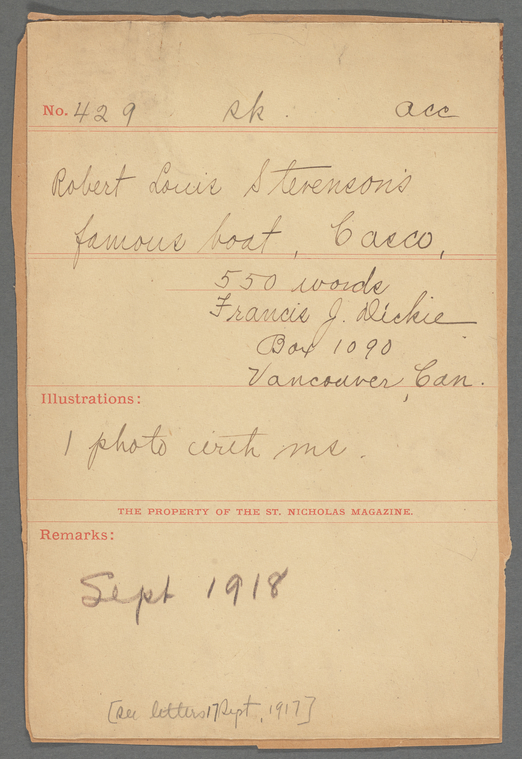 No. 429 sk. acc
Robert Louis Stevenson's
famous boat, Casco,
550 words
Francis J. Dickie
Box 1090
Vancouver, Can.
Illustrations:
1 photo with ms.
THE PROPERTY OF THE ST. NICHOLAS MAGAZINE.
Remarks:
Sept 1918
[see letters 17 Sept, 1917]